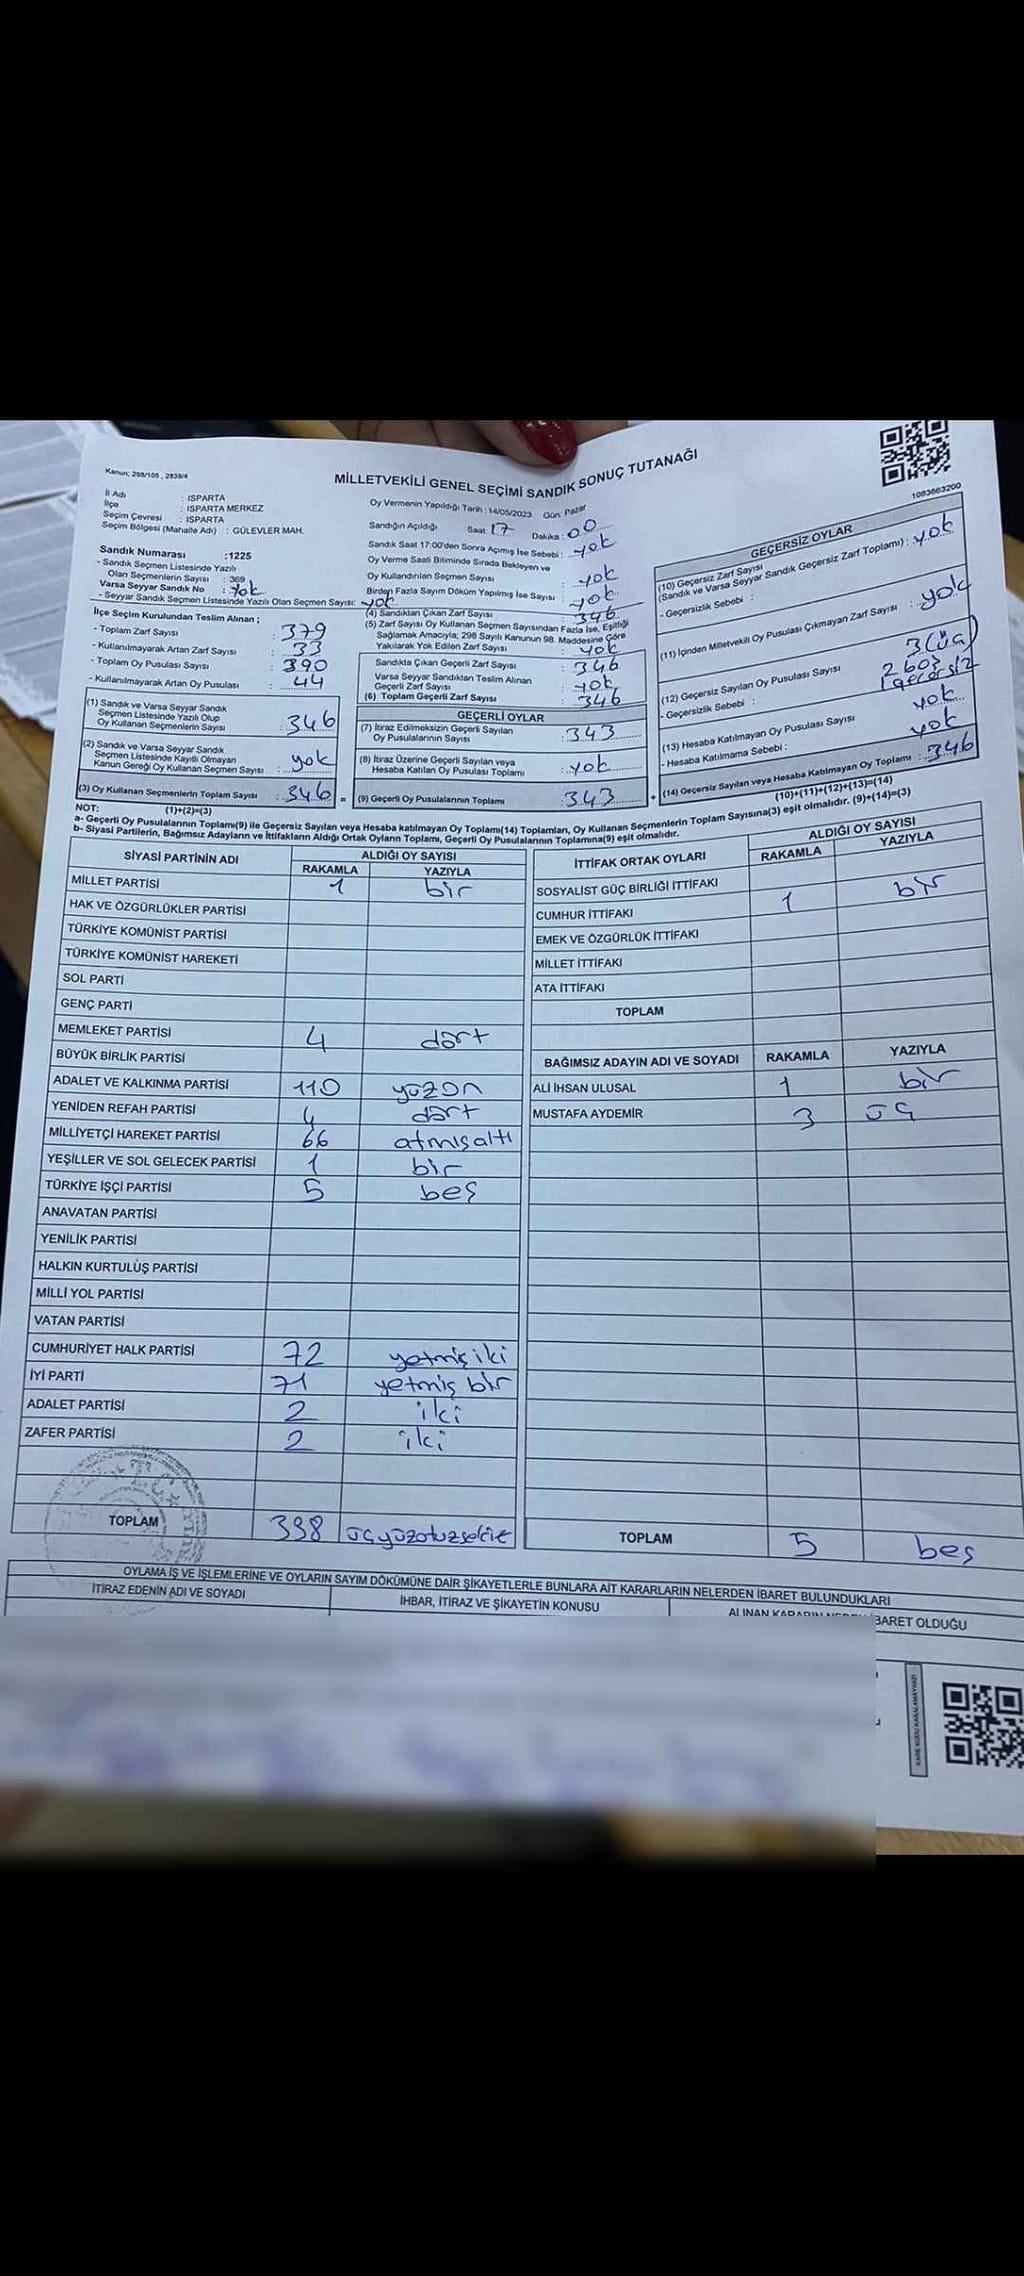 Kanun; 298/105 , 2839/4
MİLLETVEKİLİ GENEL SEÇİMİ SANDIK SONUÇ TUTANAĞI
1083663200
İl Adı : ISPARTA
İlçe : ISPARTA MERKEZ
Seçim Çevresi : ISPARTA
Seçim Bölgesi (Mahalle Adı) : GÜLEVLER MAH.
Sandık Numarası :1225
- Sandık Seçmen Listesinde Yazılı
Olan Seçmenlerin Sayısı : 369
Varsa Seyyar Sandık No : Yok
- Seyyar Sandık Seçmen Listesinde Yazılı Olan Seçmen Sayısı: yok
İlçe Seçim Kurulundan Teslim Alınan ;
- Toplam Zarf Sayısı : 379
- Kullanılmayarak Artan Zarf Sayısı : 33
- Toplam Oy Pusulası Sayısı : 390
- Kullanılmayarak Artan Oy Pusulası : 44
(1) Sandık ve Varsa Seyyar Sandık
Seçmen Listesinde Yazılı Olup
Oy Kullanan Seçmenlerin Sayısı : 346
(2) Sandık ve Varsa Seyyar Sandık
Seçmen Listesinde Kayıtlı Olmayan
Kanun Gereği Oy Kullanan Seçmen Sayısı : yok
(3) Oy Kullanan Seçmenlerin Toplam Sayısı : 346 =
Oy Vermenin Yapıldığı Tarih : 14/05/2023 Gün: Pazar
Sandığın Açıldığı Saat: 17 Dakika : 00
Sandık Saat 17:00'den Sonra Açımış İse Sebebi : yok
Oy Verme Saati Bitiminde Sırada Bekleyen ve
Oy Kullandırılan Seçmen Sayısı : yok
Birden Fazla Sayım Döküm Yapılmış İse Sayısı : yok
(4) Sandıktan Çıkan Zarf Sayısı : 346
(5) Zarf Sayısı Oy Kullanan Seçmen Sayısından Fazla İse, Eşitliği
Sağlamak Amacıyla; 298 Sayılı Kanunun 98. Maddesine Göre
Yakılarak Yok Edilen Zarf Sayısı : yok
Sandıkta Çıkan Geçerli Zarf Sayısı : 346
Varsa Seyyar Sandıktan Teslim Alınan
Geçerli Zarf Sayısı : yok
(6) Toplam Geçerli Zarf Sayısı : 346
GEÇERLİ OYLAR
(7) İtiraz Edilmeksizin Geçerli Sayılan
Oy Pusulalarının Sayısı : 343
(8) İtiraz Üzerine Geçerli Sayılan veya
Hesaba Katılan Oy Pusulası Toplamı : yok
(9) Geçerli Oy Pusulalarının Toplamı : 343 +
GEÇERSİZ OYLAR
(10) Geçersiz Zarf Sayısı
(Sandık ve Varsa Seyyar Sandık Geçersiz Zarf Toplamı) : yok
- Geçersizlik Sebebi :
(11) İçinden Milletvekili Oy Pusulası Çıkmayan Zarf Sayısı : yok
(12) Geçersiz Sayılan Oy Pusulası Sayısı 3 (üç)
- Geçersizlik Sebebi : 2 boş 1 geçersiz
(13) Hesaba Katılmayan Oy Pusulası Sayısı yok
- Hesaba Katılmama Sebebi : yok
(14) Geçersiz Sayılan veya Hesaba Katılmayan Oy Toplamı : 346
(10)+(11)+(12)+(13)=(14)
NOT: (1)+(2)=(3)
a- Geçerli Oy Pusulalarının Toplamı(9) ile Geçersiz Sayılan veya Hesaba katılmayan Oy Toplamı(14) Toplamları, Oy Kullanan Seçmenlerin Toplam Sayısına(3) eşit olmalıdır. (9)+(14)=(3)
b- Siyasi Partilerin, Bağımsız Adayların ve İttifakların Aldığı Ortak Oyların Toplamı, Geçerli Oy Pusulalarının Toplamına(9) eşit olmalıdır.
SİYASİ PARTİNİN ADI ALDIĞI OY SAYISI
RAKAMLA YAZIYLA
MİLLET PARTİSİ 1 bir
HAK VE ÖZGÜRLÜKLER PARTİSİ
TÜRKİYE KOMÜNİST PARTİSİ
TÜRKİYE KOMÜNİST HAREKETİ
SOL PARTİ
GENÇ PARTİ
MEMLEKET PARTİSİ 4 dört
BÜYÜK BİRLİK PARTİSİ
ADALET VE KALKINMA PARTİSİ 110 yüzon
YENİDEN REFAH PARTİSİ 4 dört
MİLLİYETÇİ HAREKET PARTİSİ 66 atmışaltı
YEŞİLLER VE SOL GELECEK PARTİSİ 1 bir
TÜRKİYE İŞÇİ PARTİSİ 5 beş
ANAVATAN PARTİSİ
YENİLİK PARTİSİ
HALKIN KURTULUŞ PARTİSİ
MİLLİ YOL PARTİSİ
VATAN PARTİSİ
CUMHURİYET HALK PARTİSİ 72 yetmişiki
İYİ PARTİ 71 yetmiş bir
ADALET PARTİSİ 2 iki
ZAFER PARTİSİ 2 iki
TOPLAM 338 üçyüzotuzsekiz
İTTİFAK ORTAK OYLARI ALDIĞI OY SAYISI
RAKAMLA YAZIYLA
SOSYALİST GÜÇ BİRLİĞİ İTTİFAKI
CUMHUR İTTİFAKI 1 bir
EMEK VE ÖZGÜRLÜK İTTİFAKI
MİLLET İTTİFAKI
ATA İTTİFAKI
TOPLAM
BAĞIMSIZ ADAYIN ADI VE SOYADI RAKAMLA YAZIYLA
ALİ İHSAN ULUSAL 1 bir
MUSTAFA AYDEMİR 3 üç
TOPLAM 5 beş
OYLAMA İŞ VE İŞLEMLERİNE VE OYLARIN SAYIM DÖKÜMÜNE DAİR ŞİKAYETLERLE BUNLARA AİT KARARLARIN NELERDEN İBARET BULUNDUKLARI
İTİRAZ EDENİN ADI VE SOYADI İHBAR, İTİRAZ VE ŞİKAYETİN KONUSU ALINAN KARARIN NEDEN İBARET OLDUĞU